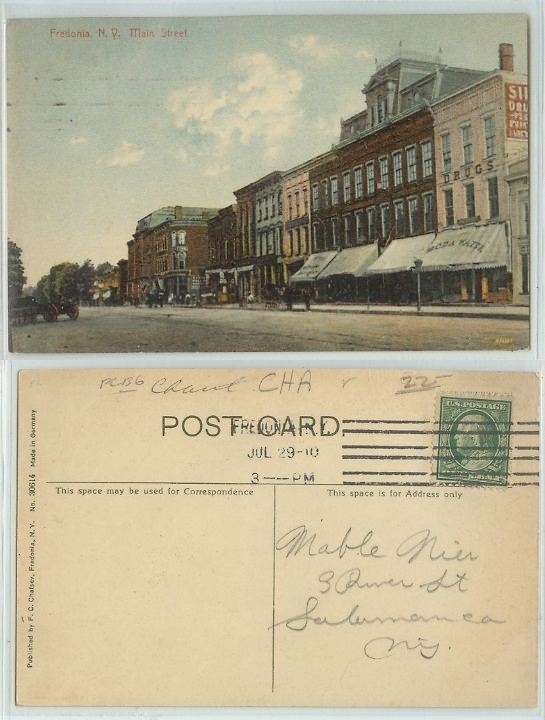 Fredonia, N. Y. Main Street
DRUGS
SODA WATER
PCBG Chaut. CHA 22-
POST CARD
FREDONIA, N.Y.
JUL 29-10
3 - PM
U.S. POSTAGE
This space may be used for Correspondence
This space is for Address only
Mable Nier
3 River St
Salamanca
N.Y.
Published by F. C. Chatsey, Fredonia, N.Y. No. 30614 Made in Germany